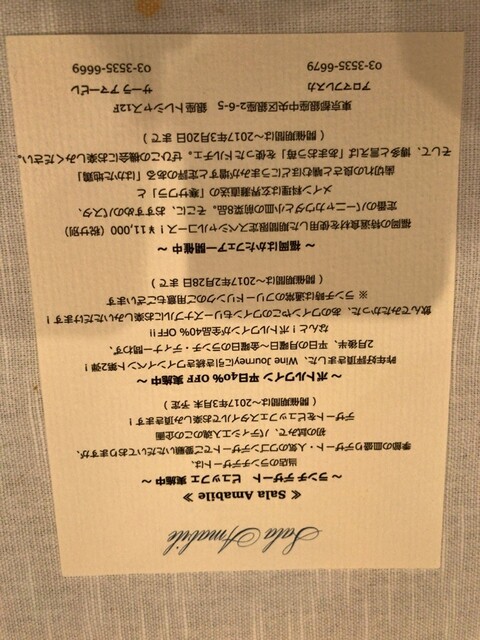 Sala Amabile
≪ Sala Amabile ≫
～ ランチデザート ビュッフェ 実施中 ～
当店のランチデザートは、
季節の皿盛りデザート・人気のワゴンデザートでご愛顧いただいておりますが、
初の試みで、パティシエ入魂のこの企画
デザートをビュッフェスタイルでお楽しみ頂きます！
（ 開催期間は～2017年3月末 予定 ）
～ボトルワイン 平日40％ OFF 実施中～
昨年好評頂きました、Wine Journeyに引き続きワインイベント第2弾！
2月後半、平日の月曜日～金曜日のランチ・ディナー問わず、
なんと！ボトルワインが全品40％ OFF!!
飲んでみたかった、あのワインやこのワインもリーズナブルにお楽しみいただけます！
※ ランチタイム時は通常のフリードリンクのご用意もございます
（ 開催期間は～2017年2月28日 まで ）
～ 福岡はかたフェアー開催中 ～
福岡の特選食材を使用した期間限定スペシャルコース！￥11,000（税サ別）
定番のバーニャカウダと小皿の前菜8品。そこに、おすすめのパスタ、
メイン料理は玄界灘直送の「寒サワラ」 と
歯切れの良さと噛むほどにうまみが増すと定評のある「はかた地鶏」
そして、博多と言えば「あまおう苺」を使ったドルチェ。ぜひこの機会にお楽しみください。
（ 開催期間は～2017年3月20日 まで ）
東京都中央区銀座2-6-5 銀座トレシャス12F
アロマフレスカ サーラ アマービレ
03-3535-6679 03-3535-6669